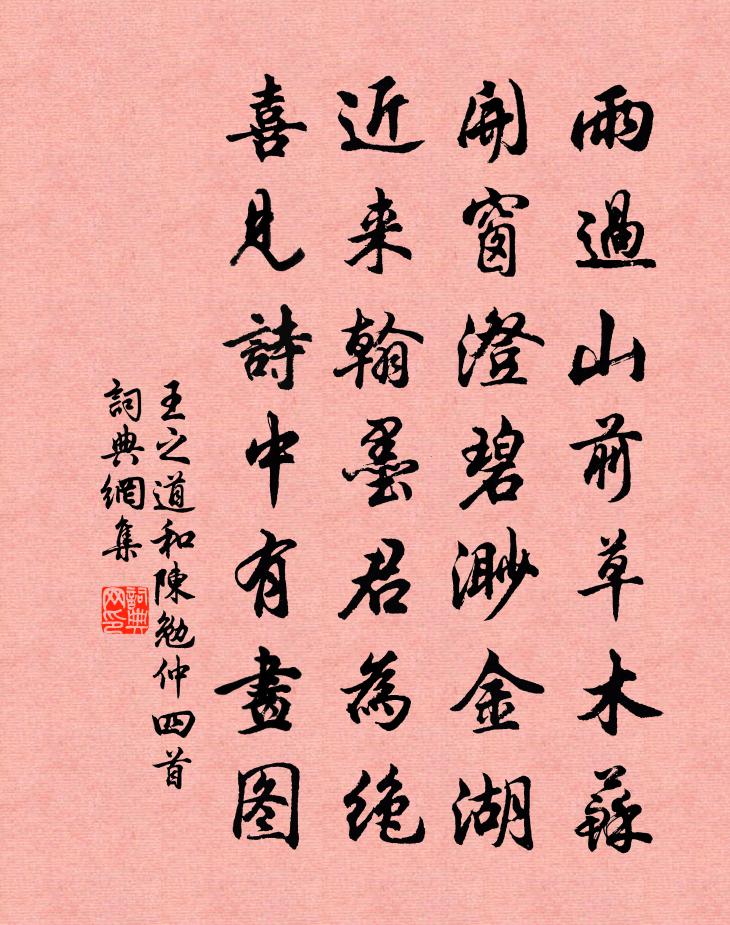 雨過山前草木蘇
開窗澄碧渺金湖
近来翰墨君為絶
喜見詩中有畫图
王之道和陳勉仲四首
詞典網集
詞典网印